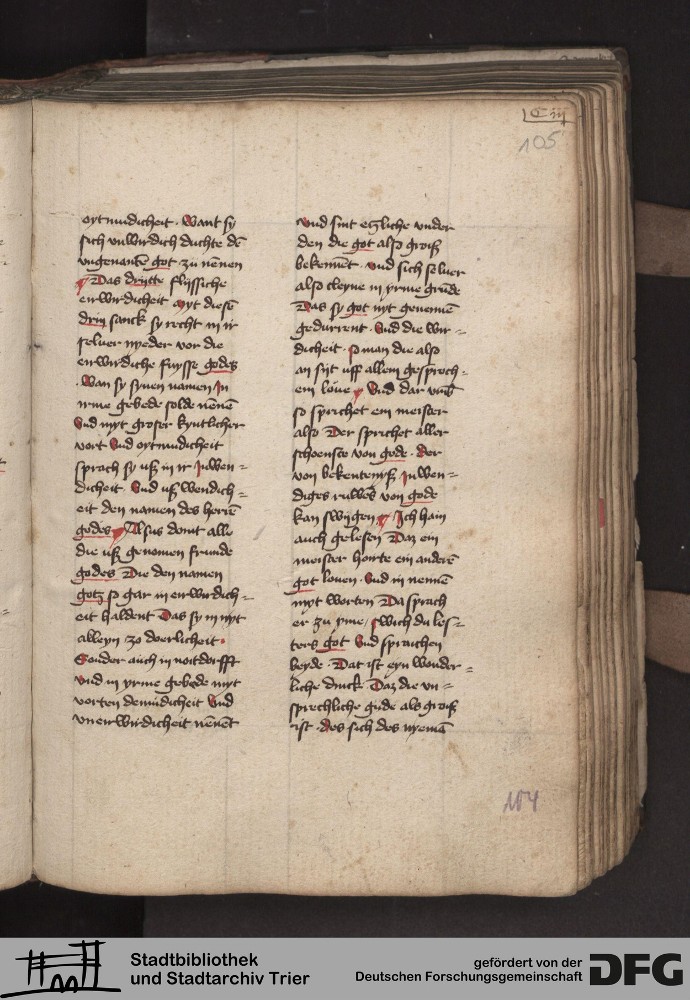 Ciij
105
oytmudicheit . Want sy
sich vnwirdich duchte dē
vngenantē got zu nēnen
Das drytte flyssiche
erwirdicheit Myt diesē
dryn sanck sy recht in ir
seluer nyeder vor die
erwirdiche fuysse godes
. Wan sy synen namen In
irme gebede solde nēnē
Vnd myt groser kyntlicher
vort Vnd oytmudicheit
sprach sy uß in ir Inwen=
dicheit Vnd uß wendich=
eit den namen des herrē
godes Alsus dout alle
die uß genomen frunde
godes Die den namen
gotz so gar in erwirdich=
eit haldent Das sy in nyt
alleyn zo doerlicheit.
Sonder auch in noitdorfft
vnd in yrme gebede myt
vorten demudicheit Vnd
vnerwirdicheit nēnēt
Vnd sint etzliche vnder
den die got also groiß
bekennēt . vnd sich seluer
also cleyne in yrme grūde
Das sy got nyt genennē
gedurrent . Vnd die wir=
dicheit . so man die also
an siit uff allem gesproch=
em loue Vnd dar vmb
so sprichet ein meister
also Der sprichet aller
schoenste von gode . der
von bekentniß Inwen=
diges ruwes von gode
kan swygen Ich hain
auch gelesen Daz ein
meister horte ein anderē
got louen . Vnd in nennē
myt worten Da sprach
er zu yme / swich du les=
ters got Vnd sprachen
beyde . Dat ist eyn wonder=
liche dinck Daz die vn=
sprechliche gude als groiß
ist . des sich des nyemā
104
Stadtbibliothek
und Stadtarchiv Trier
gefördert von der
Deutschen Forschungsgemeinschaft
DFG